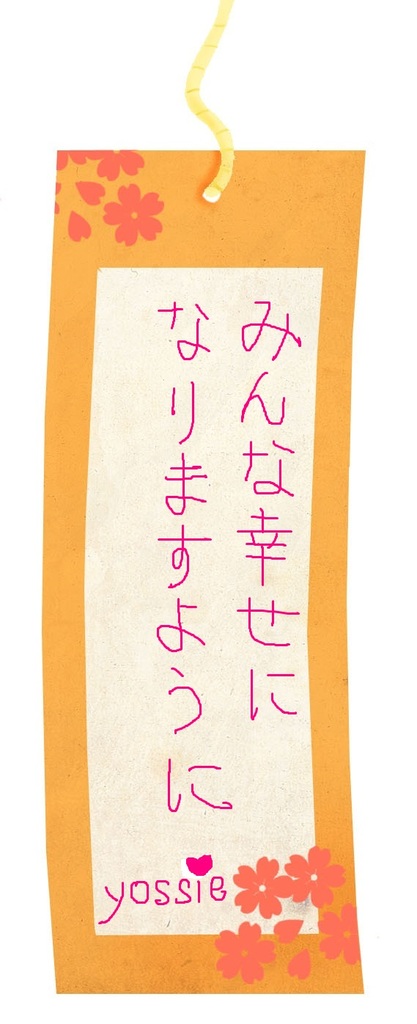 みんな幸せに
なりますように
yossie